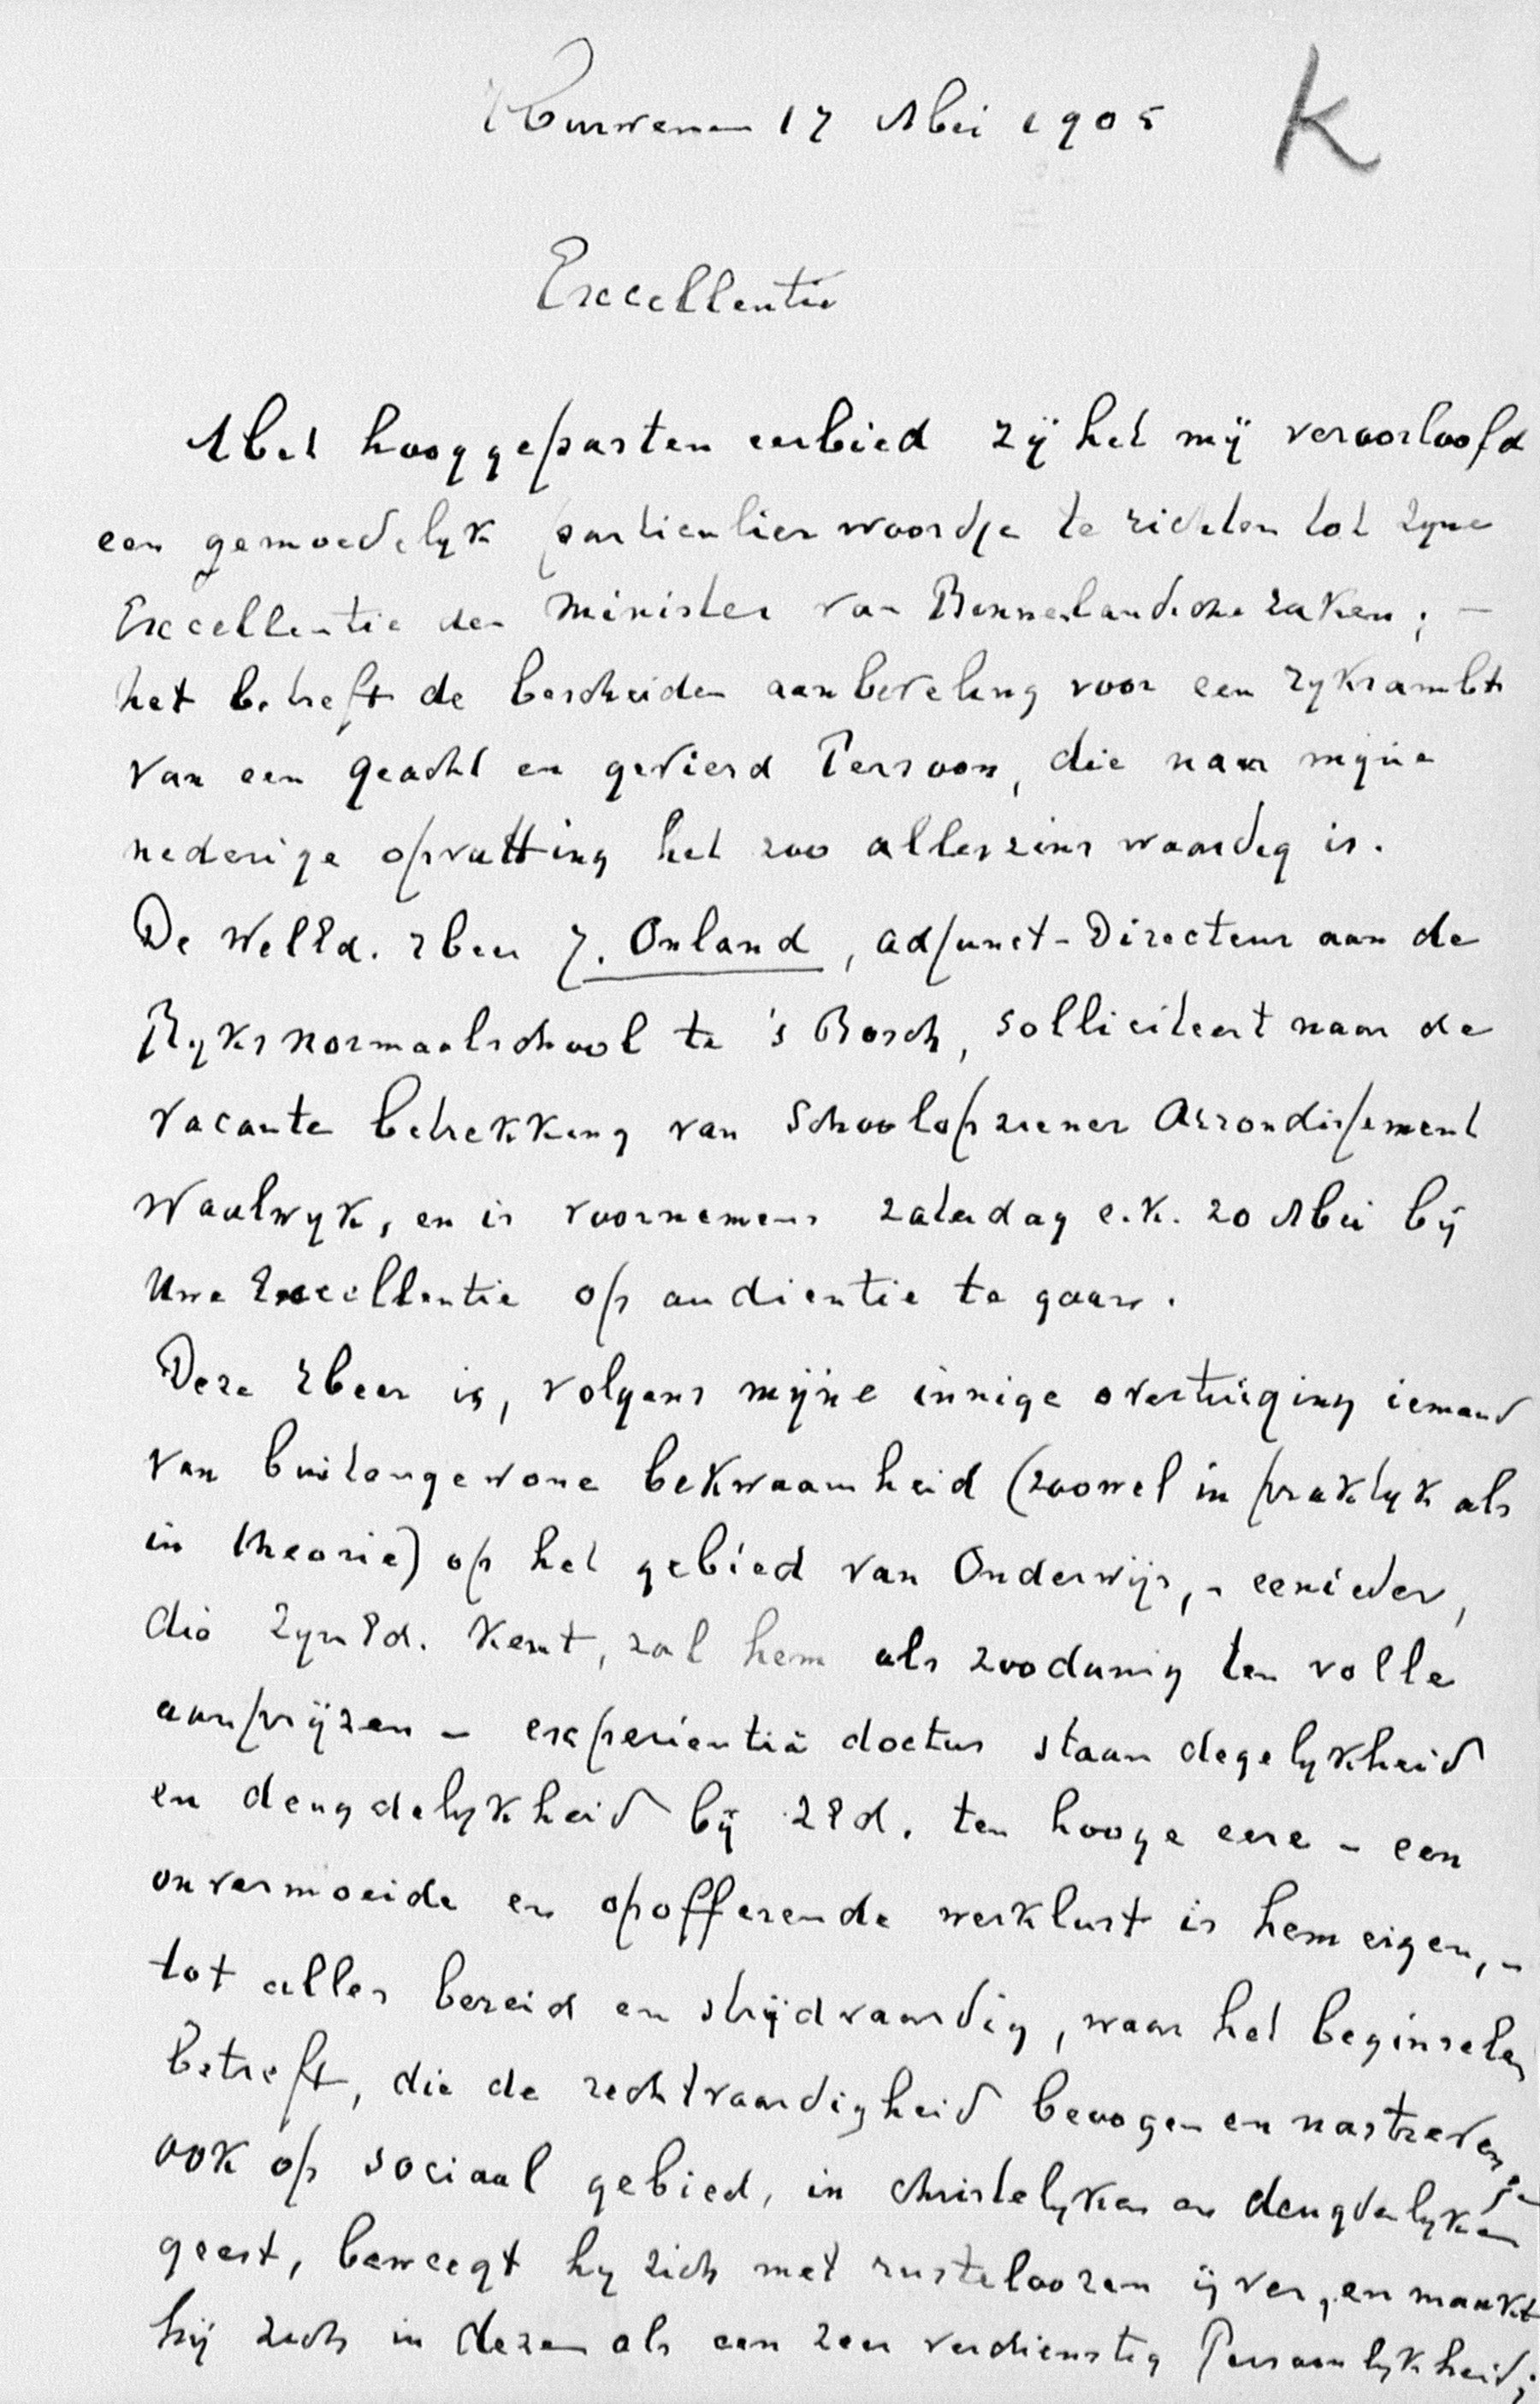 Hurwenen 17 Mei 1905
K
Excellentie
Met hooggepasten eerbied zij het mij veroorloofd
een gemoedelyk particulier woordje te richten tot Zyne
Excellentie den Minister van Binnenlandsche zaken; –
het betreft de bescheiden aanbeveling voor een rykrambt
van een geacht en gevierd Persoon, die naar mijne
nederige opvatting het zoo alleszins waardig is.
De WelEd. Heer J. Onland, adjunct-Directeur aan de
Ryksnormaalschool te 's Bosch, solliciteert naar de
vacante betrekking van Schoolopziener Arrondissement
Waalwyk, en is voornemens zaterdag e.k. 20 Mei bij
Uwe Excellentie op audientie te gaan.
Deze Heer is, volgens mijne innige overtuiging iemand
van buitengewone bekwaamheid (zoowel in praktyk als
in theorie) op het gebied van Onderwijs, – eenieder,
die ZynEd. kent, zal hem als zoodanig ten volle
aanprijzen – experientiâ doctus staan degelykheid
en deugdelykheid bij ZEd. ten hooge eere – een
onvermoeide en opofferende werklust is hem eigen, –
tot alles bereid en strijdvaardig, waar het beginselen
betreft, die de rechtvaardigheid beoogen en nastreven;
ook op sociaal gebied, in christelyken en deugdelyken
geest, beweegt hy zich met rusteloozen ijver, en maakt
hij zich in dezen als een zeer verdienstig Persoonlykheid;